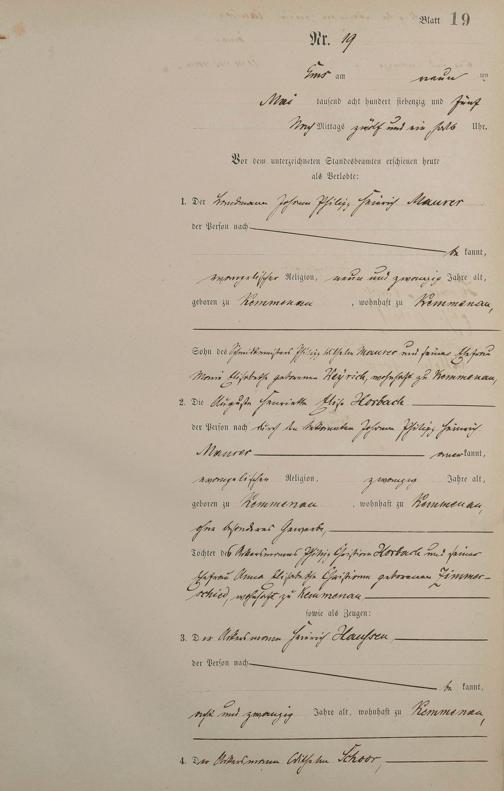 Blatt 19
Nr. 19
Ems am neun ten
Mai tausend acht hundert siebenzig und fünf
Nach Mittags zwölf und ein halb Uhr.
Vor dem unterzeichneten Standesbeamten erschienen heute
als Verlobte:
1. Der Landmann Johann Philipp Heinrich Maurer
der Person nach
be kannt,
evangelischer Religion, neun und zwanzig Jahre alt,
geboren zu Kemmenau, wohnhaft zu Kemmenau,
Sohn des Schmiedemeisters Philipp Wilhelm Maurer und seiner Ehefrau
Maria Elisabetha geborenen Heyrich, wohnhaft zu Kemmenau,
2. Die Auguste Henriette Elise Horbach
der Person nach durch den bekannten Johann Philipp Heinrich
Maurer anerkannt,
evangelischen Religion, zwanzig Jahre alt,
geboren zu Kemmenau, wohnhaft zu Kemmenau,
ohne besonderes Gewerbe,
Tochter des Ackersmannes Philipp Christian Horbach und seiner
Ehefrau Anna Elisabetha Christiana geborenen Zimmer-
schied, wohnhaft zu Kemmenau
sowie als Zeugen:
3. Der Ackersmann Heinrich
der Person nach
be kannt,
acht und zwanzig Jahre alt, wohnhaft zu Kemmenau,
4. Der Ackersmann Wilhelm Schoor,